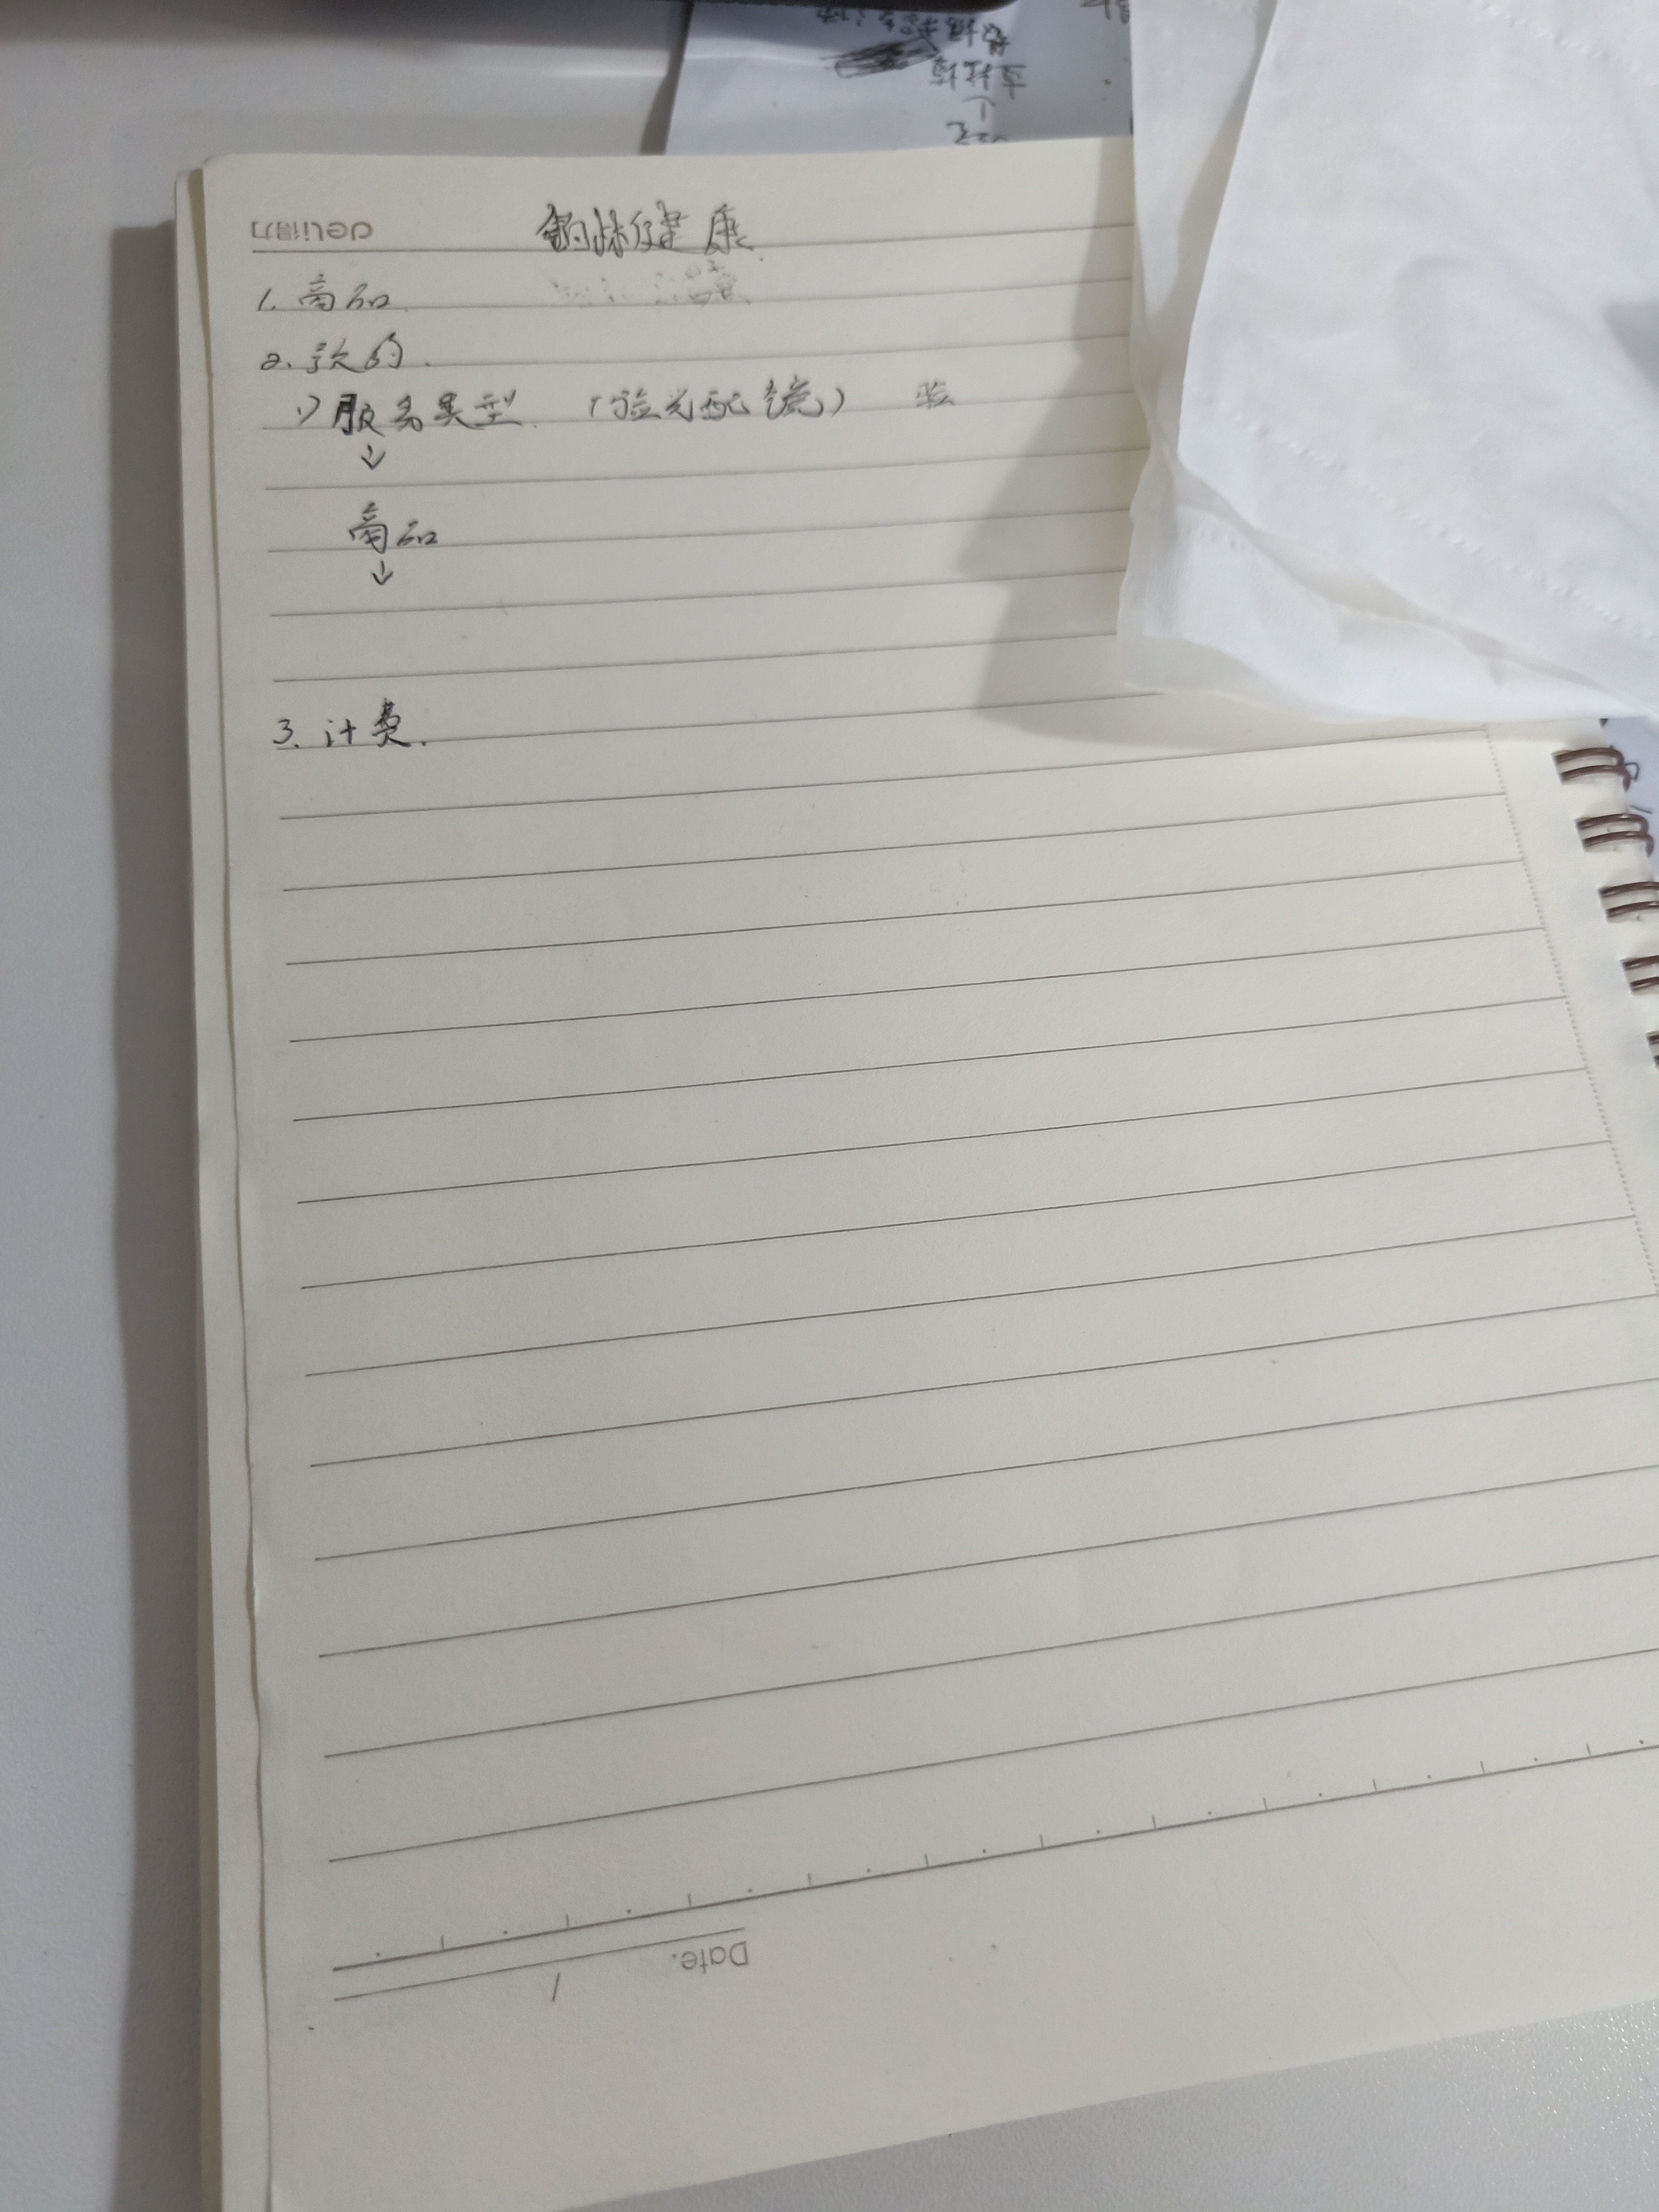 deli得力
健康
1. 商品.
2. 预约.
1) 服务类型. (验光配镜) 验
↓
商品
↓
3. 计费.
Date.
/